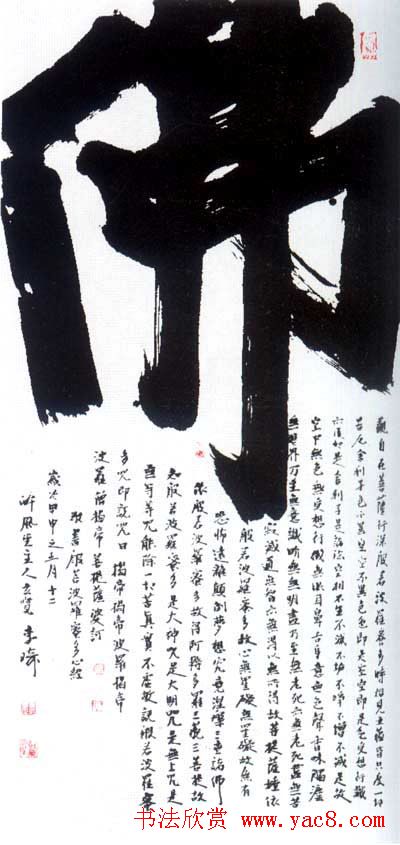 佛
觀自在菩薩行深般若波羅蜜多時照見五蘊皆空度一切
苦厄舍利子色不異空空不異色色即是空空即是色受想行識
亦復如是舍利子是諸法空相不生不滅不垢不淨不增不減是故
空中無色無受想行識無眼耳鼻舌身意無色聲香味觸法
無眼界乃至無意識界無無明盡乃至無老死亦無老死盡無苦
寂滅道無智亦無得以無所得故菩提薩埵依
般若波羅蜜多故心無罣礙無罣礙故無有
恐怖遠離顛倒夢想究竟涅槃三世諸佛
依般若波羅蜜多故得阿耨多羅三藐三菩提故
知般若波羅蜜多是大神咒是大明咒是無上咒是
無等等咒能除一切苦真實不虛故說般若波羅蜜
多咒即說咒曰揭帝揭帝波羅揭帝
波羅僧揭帝菩提薩婆訶
敬書般若波羅蜜多心經
歲次甲申之五月十二
主人 李
书法欣赏
www.yac8.com